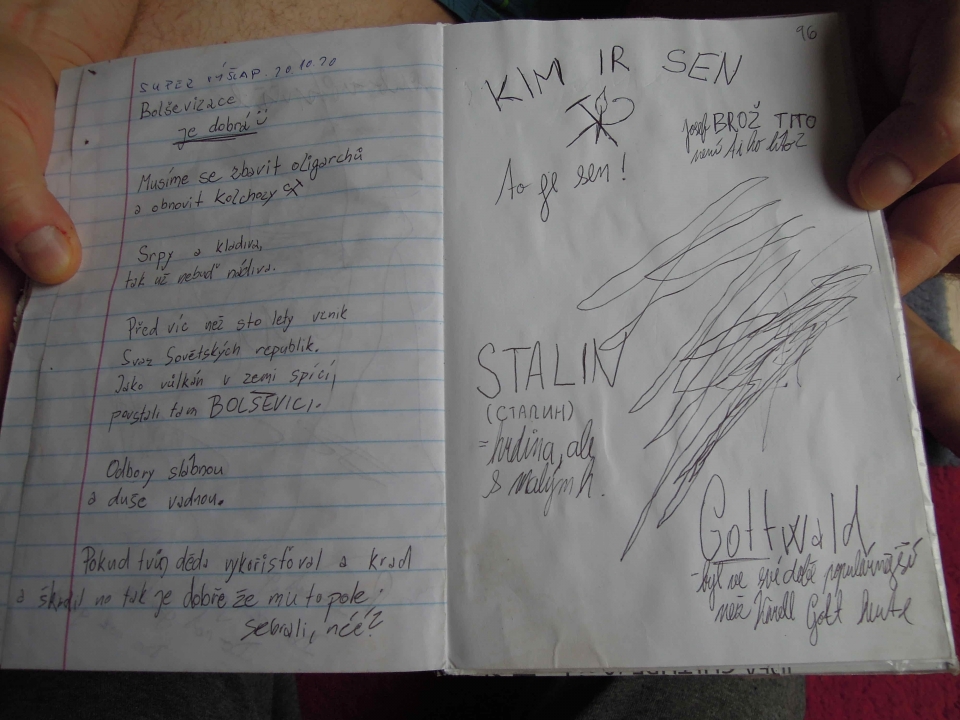 SUPER VÝŠLAP. 20.10.20
Bolševizace
je dobrá
Musíme se zbavit oligarchů
a obnovit kolchozy
Srpy a kladiva,
tak už nebuď nádiva.
Před víc než sto lety vznik
Svaz Sovětských republik.
Jako vulkán v zemi spící,
povstali tam BOLŠEVICI.
Odbory slábnou
a duše vadnou.
Pokud tvůj děda vykořisťoval a krad
a škudlil no tak je dobře že mu to pole
sebrali, néé?
96
KIM IR SEN
Josef BROŽ TITO
není
to je sen!
STALIN
(СТАЛИН)
= hrdina, ale
s malým h.
Gottwald
- byl ve své době populárnější
než Karel Gott